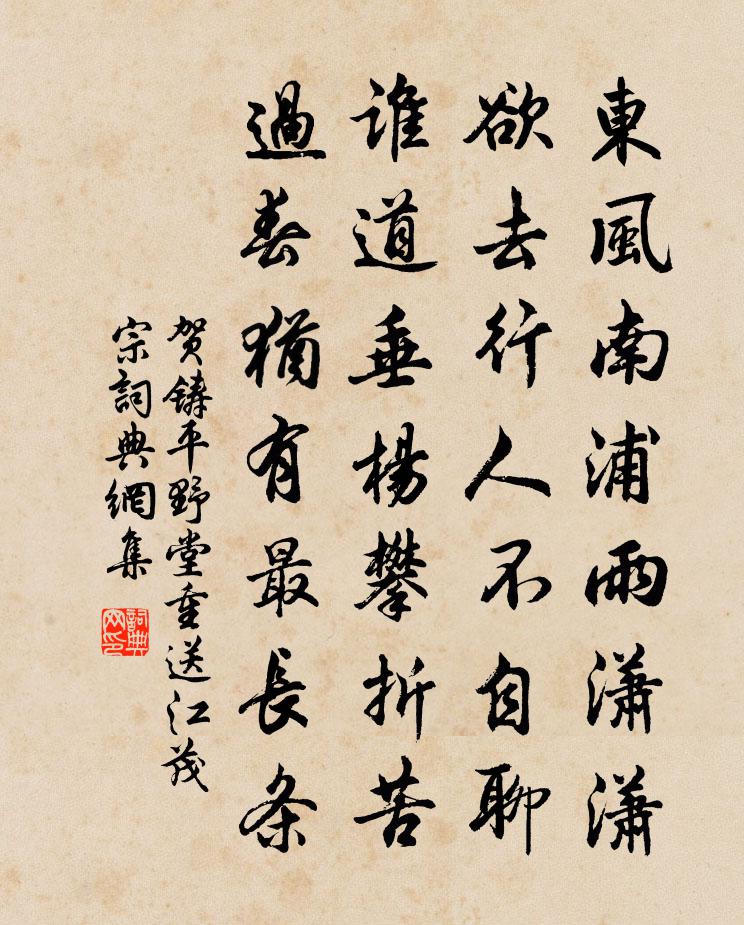 東風南浦雨瀟瀟
欲去行人不自聊
誰道垂楊攀折苦
過春猶有最長条
贺鑄平野堂重送江茂
宗詞典網集
詞典
网印